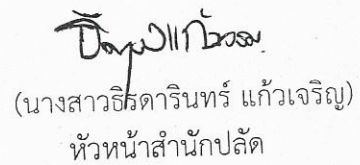 (นางสาวธิรดารินทร์ แก้วเจริญ)
หัวหน้าสำนักปลัด